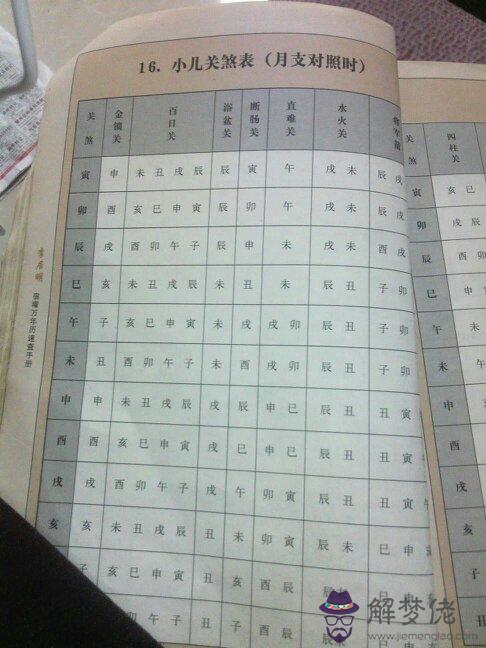 16. 小儿关煞表（月支对照时）
关煞 金锁关 百日关 浴盆关 断肠关 直难关 水火关
寅 申 未 丑 戌 辰 辰 寅 午 戌 未 辰 戌
卯 酉 亥 巳 申 寅 辰 卯 午 戌 未 辰 戌
辰 戌 酉 卯 午 子 辰 申 未 戌 未 酉 戌
巳 亥 未 丑 戌 辰 未 丑 未 辰 丑 子 卯
午 子 亥 巳 申 寅 未 戌 戌 卯 辰 丑 子 卯
未 丑 酉 卯 午 子 未 酉 戌 卯 辰 丑 子 卯
申 申 未 丑 戌 辰 戌 辰 申 巳 辰 丑 丑 寅
酉 酉 亥 巳 申 寅 戌 巳 申 巳 辰 丑 丑 寅
戌 戌 酉 卯 午 子 戌 午 卯 寅 辰 丑 丑 寅
亥 亥 未 丑 戌 辰 丑 未 卯 寅 辰 未 巳 申
子 子 亥 巳 申 寅 丑 亥 酉 辰 辰
丑 卯 午 子 丑 子 酉 辰
李居明
宿曜万年历速查手册
关煞 四柱关
寅 巳 亥
卯 戌 辰
辰 酉 卯
巳
午
未
申
酉
戌
亥
子
丑
解梦佬
www.jiemenglao.com